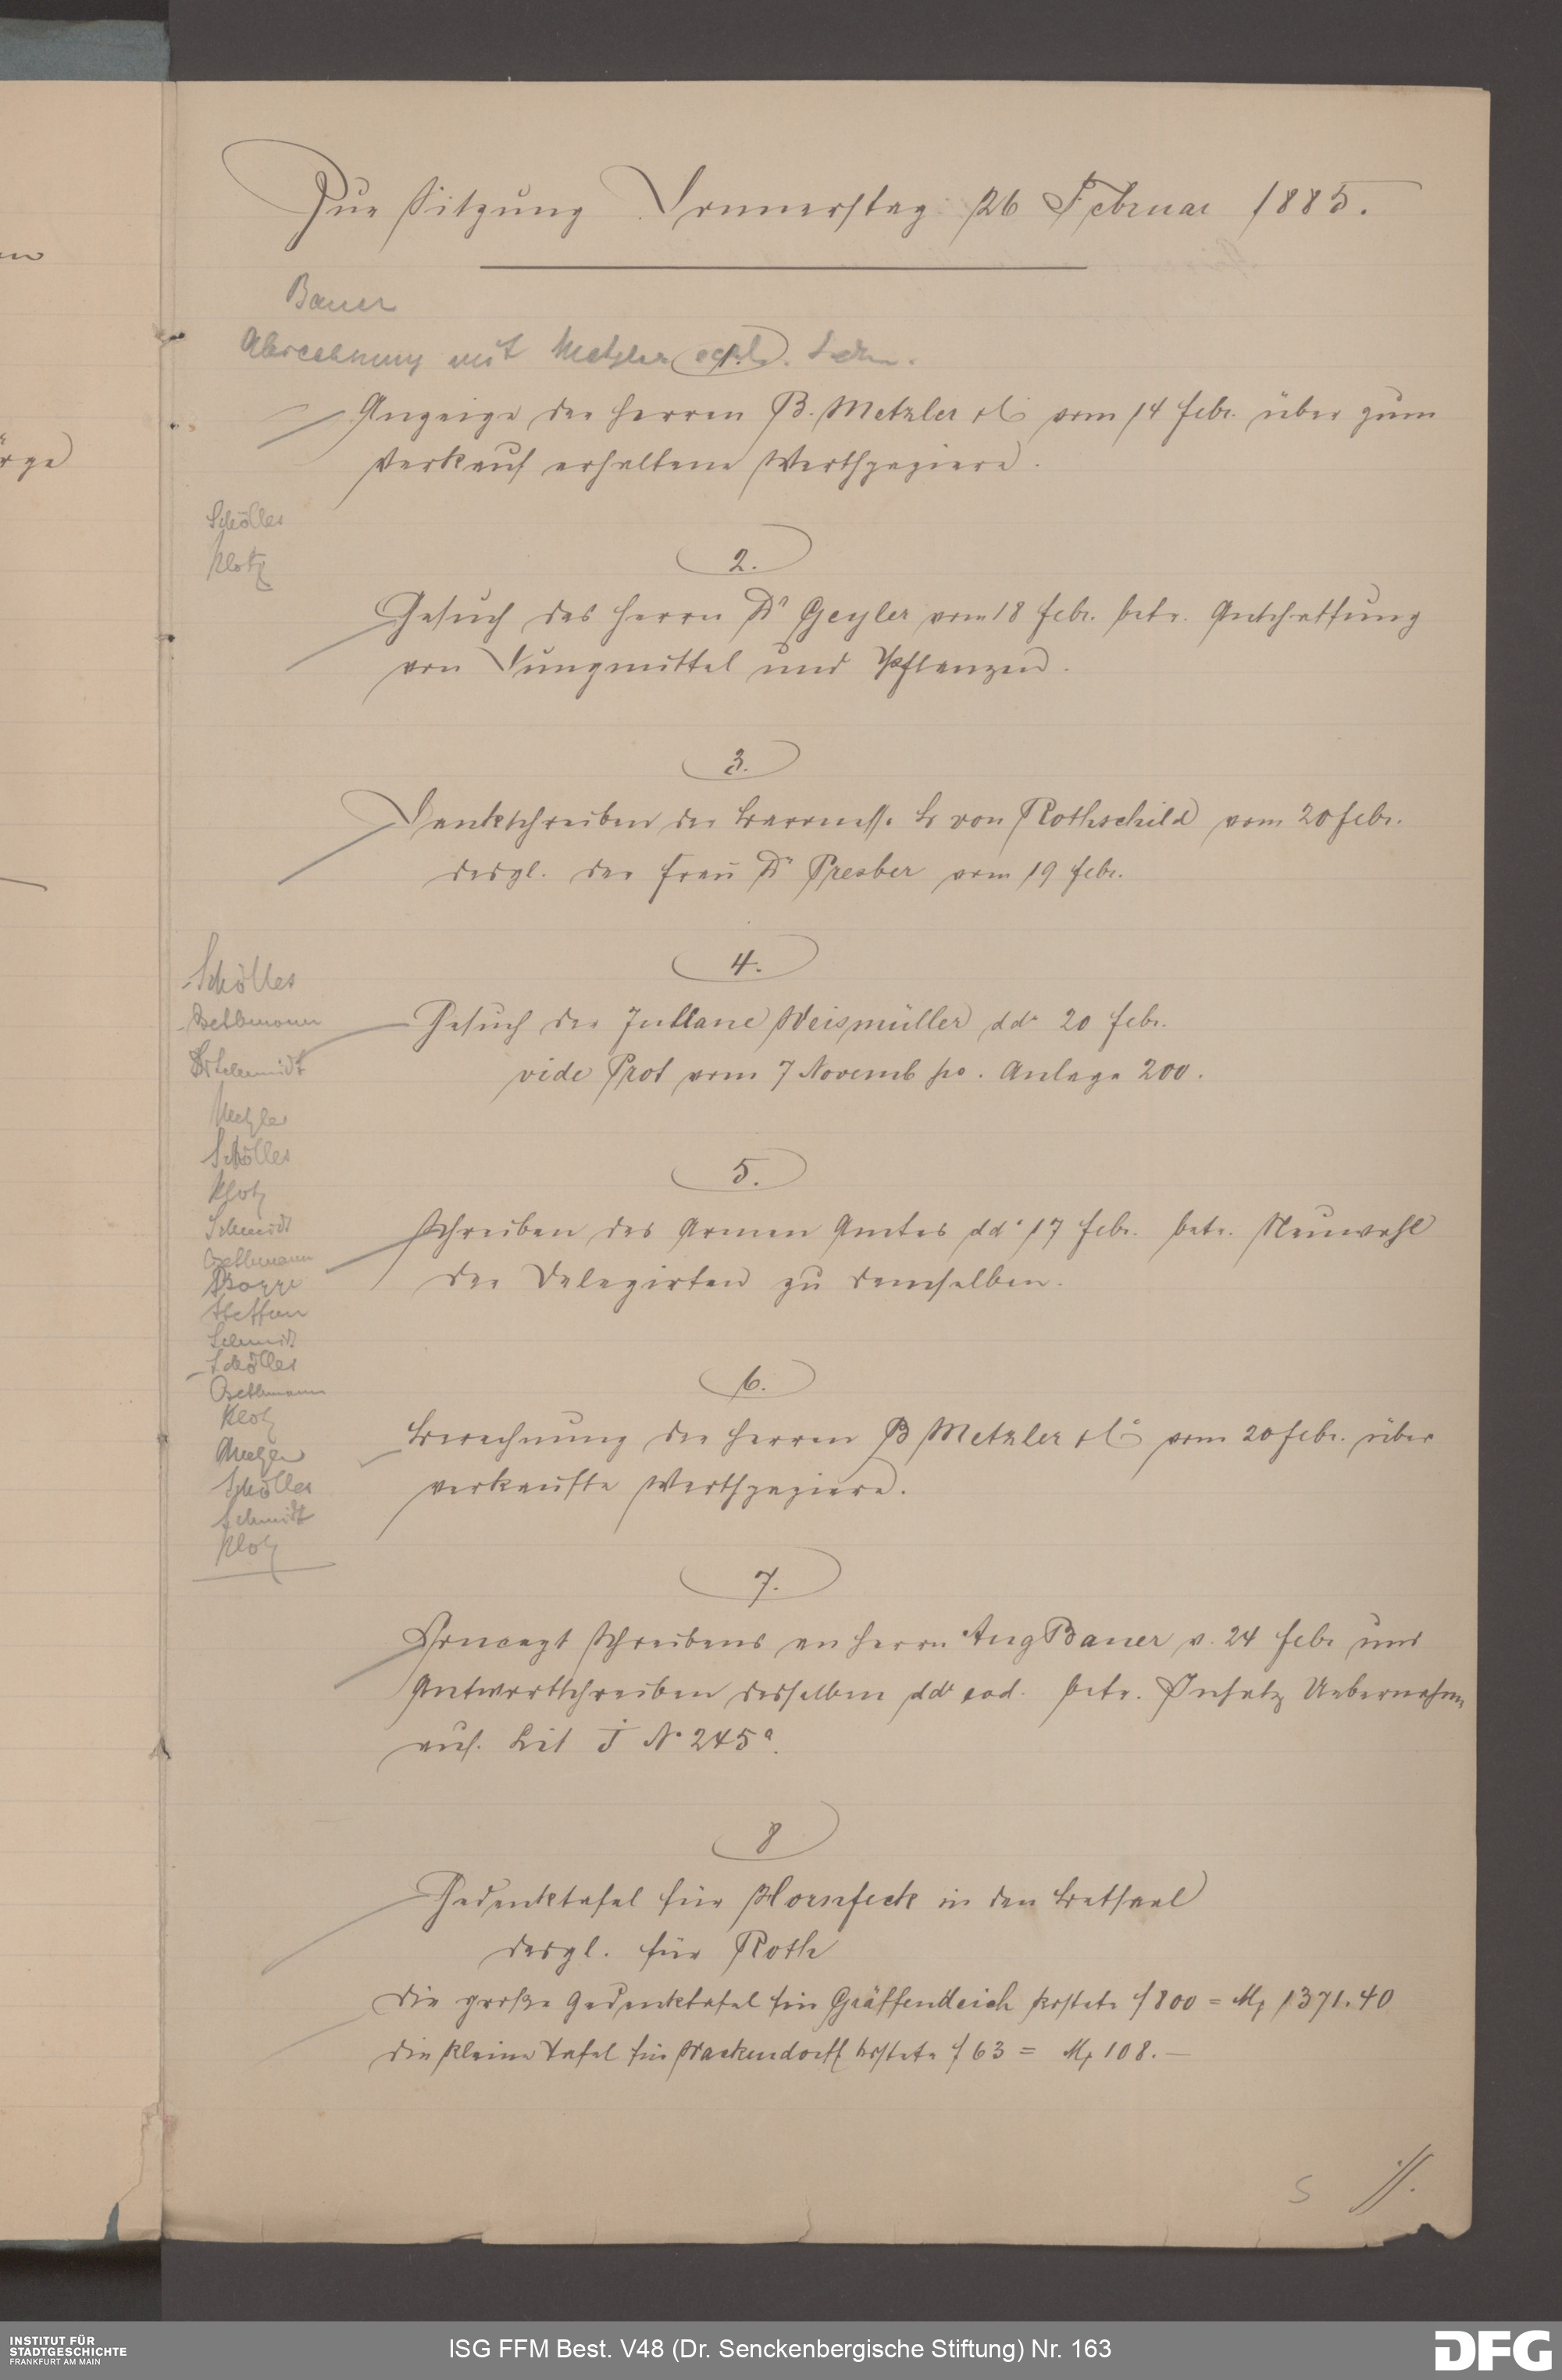 Zur Sitzung Donnerstag 26 Februar 1885.
Bauer
Abrechnung mit Metzler
1.
Anzeige der Herren B. Metzler & C° vom 14 Febr. über zum
Verkauf erhaltene Werthpapiere.
Schölles
Klotz
2.
Gesuch des Herrn Dr Geyler vom 18 Febr. betr. Anschaffung
von Dungmittel und Pflanzen.
3.
Dankschreiben der Baronesse L von Rothschild vom 20 Febr.
desgl. der Frau Dr Presber vom 19 Febr.
4.
Gesuch der Juliane Weismüller dd° 20 Febr.
vide Prot vom 7 Novemb po. Anlage 200.
Schölles
Bethmann
Dr Schmidt
Metzler
Schölles
Klotz
Schmidt
Bethmann
Steffan
Schmidt
Schölles
Bethmann
Klotz
Metzler
Schölles
Schmidt
Klotz
5.
Schreiben des Armen Amtes dd° 17 Febr. betr. Neuwahl
der Delegirten zu demselben.
6.
Berechnung der Herren B Metzler & C° vom 20 Febr. über
verkaufte Werthpapiere.
7.
Concept Schreibens an Herrn Aug Bauer v. 24 Febr und
Antwortschreiben desselben dd° eod. betr. Insatz Uebernahme
auf Lit J N° 245a.
8
Gedenktafel für Hornfeck in den Betsaal
desgl. für Roth
die große Gedenktafel für Gräffendeich kostete f 800 = M 1371.40
die kleine Tafel für Wackendorff kostete f 63 = M 108.—
S //.
en
rge
INSTITUT FÜR
STADTGESCHICHTE
FRANKFURT AM MAIN
ISG FFM Best. V48 (Dr. Senckenbergische Stiftung) Nr. 163
DFG